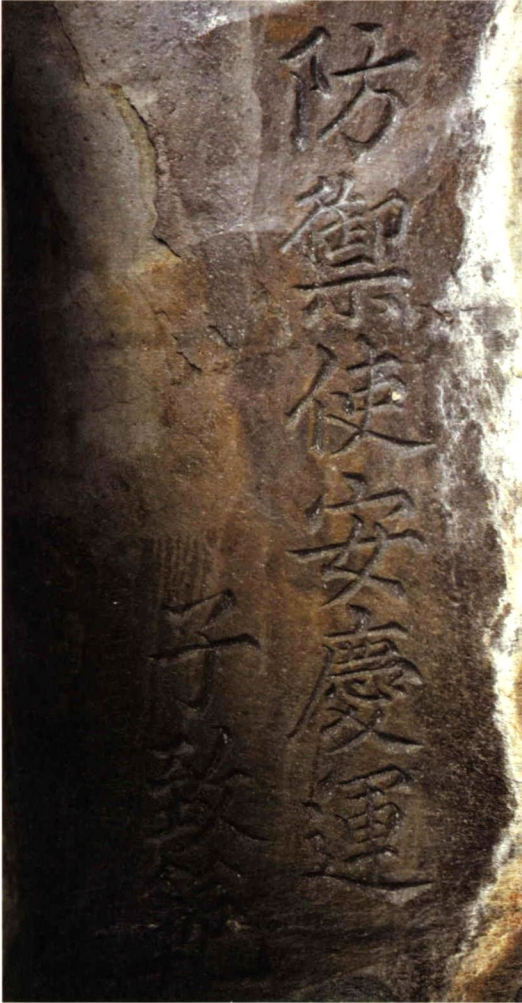 防禦使安慶運
子致